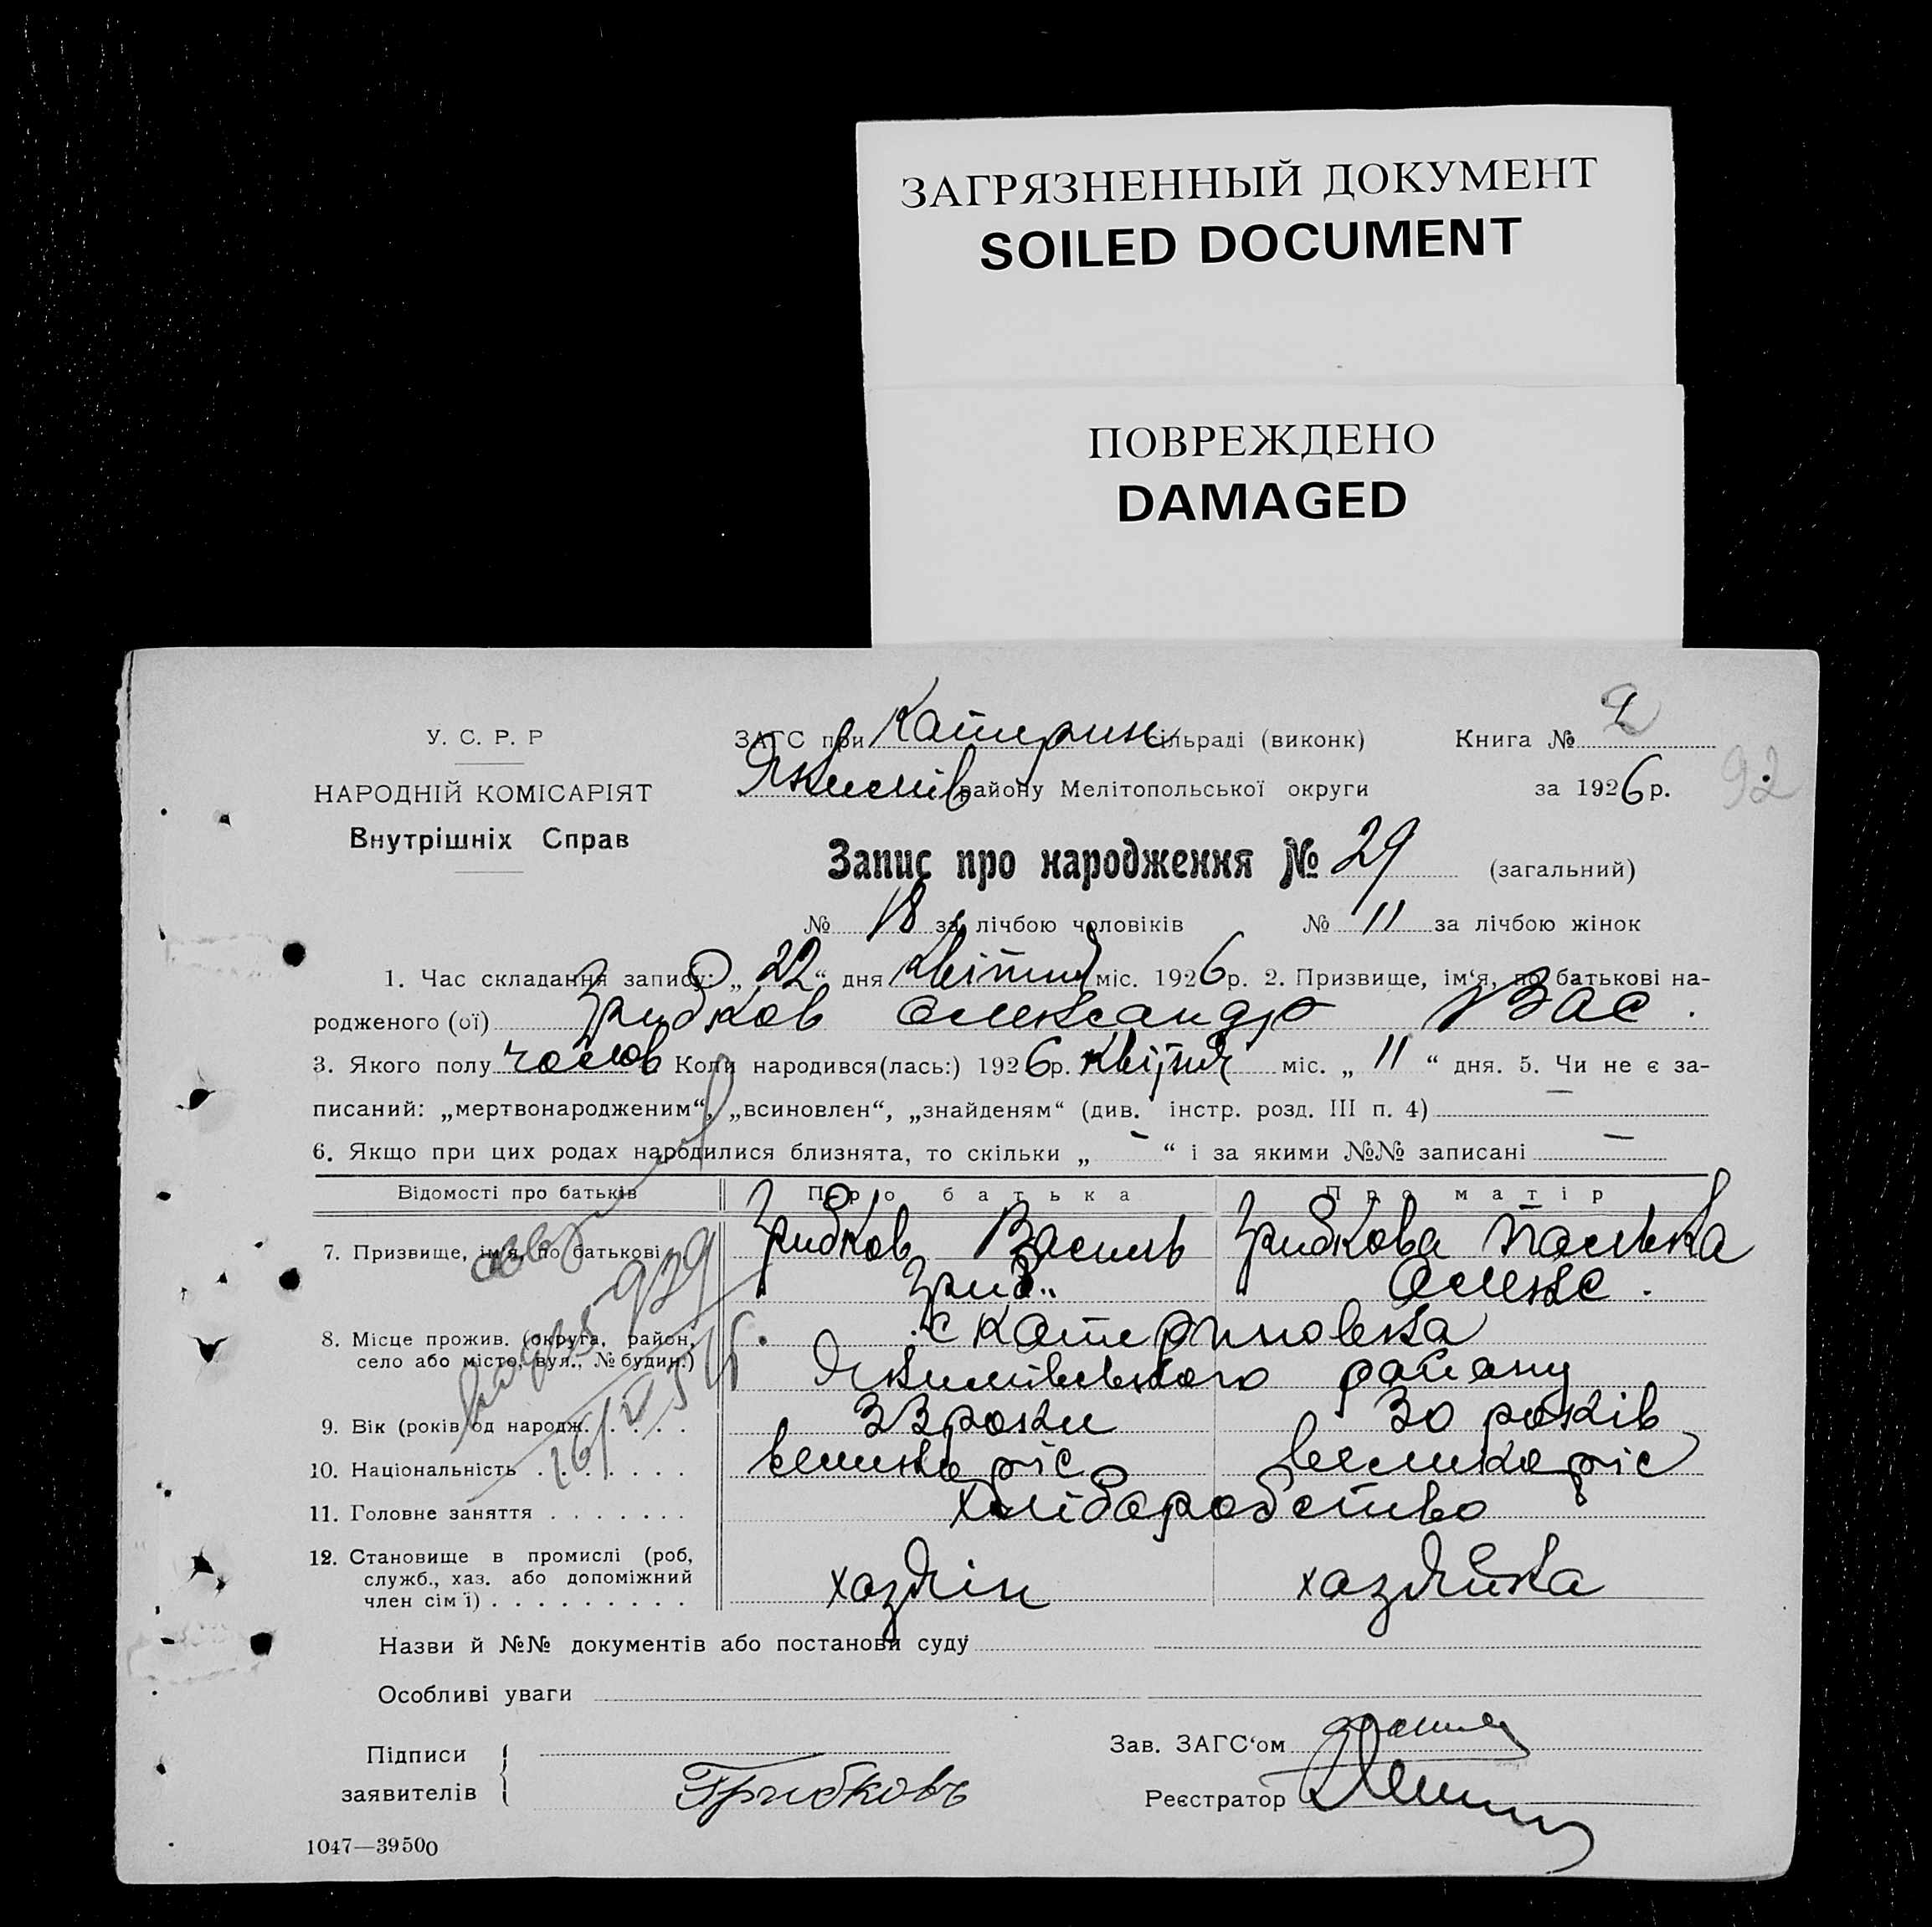 ЗАГРЯЗНЕННЫЙ ДОКУМЕНТ
SOILED DOCUMENT
ПОВРЕЖДЕНО
DAMAGED
У. С. Р. Р
НАРОДНІЙ КОМІСАРІЯТ
Внутрішніх Справ
ЗАГС при Катерин сільраді (виконк) Книга № 2
Якимів району Мелітопольської округи за 1926 р. 92
Запис про народження № 29 (загальний)
№ 18 за лічбою чоловіків № 11 за лічбою жінок
1. Час складання запису: „ 22 “ дня квітня міс. 1926 р. 2. Призвище, ім‘я, по батькові на-
родженого (ої) Грибков Олександр Вас.
3. Якого полу чолов Коли народився(лась:) 1926 р. квітня міс. „ 11 “ дня. 5. Чи не є за-
писаний: „мертвонародженим“, „всиновлен“, „знайденям“ (див. інстр. розд. III п. 4) —
6. Якщо при цих родах народилися близнята, то скільки „ — “ і за якими №№ записані —
Відомості про батьків Про батька Про матір
7. Призвище, ім‘я, по батькові Грибков Василь Грибкова Палька
Григ.. Олекс.
8. Місце прожив. (округа, район, с Катериновка
село або місто, вул., № будин.) Якимівського району
9. Вік (років од народж. 33 роки 30 років
10. Національність великоріс великоріс
11. Головне заняття хліборобство
12. Становище в промислі (роб, служб., хаз. або допоміжний член сім‘ї) хазяін хазяйка
Назви й №№ документів або постанови суду
Особливі уваги
Підписи заявителів Грибковъ
Зав. ЗАГС‘ом
Реєстратор
1047—39500